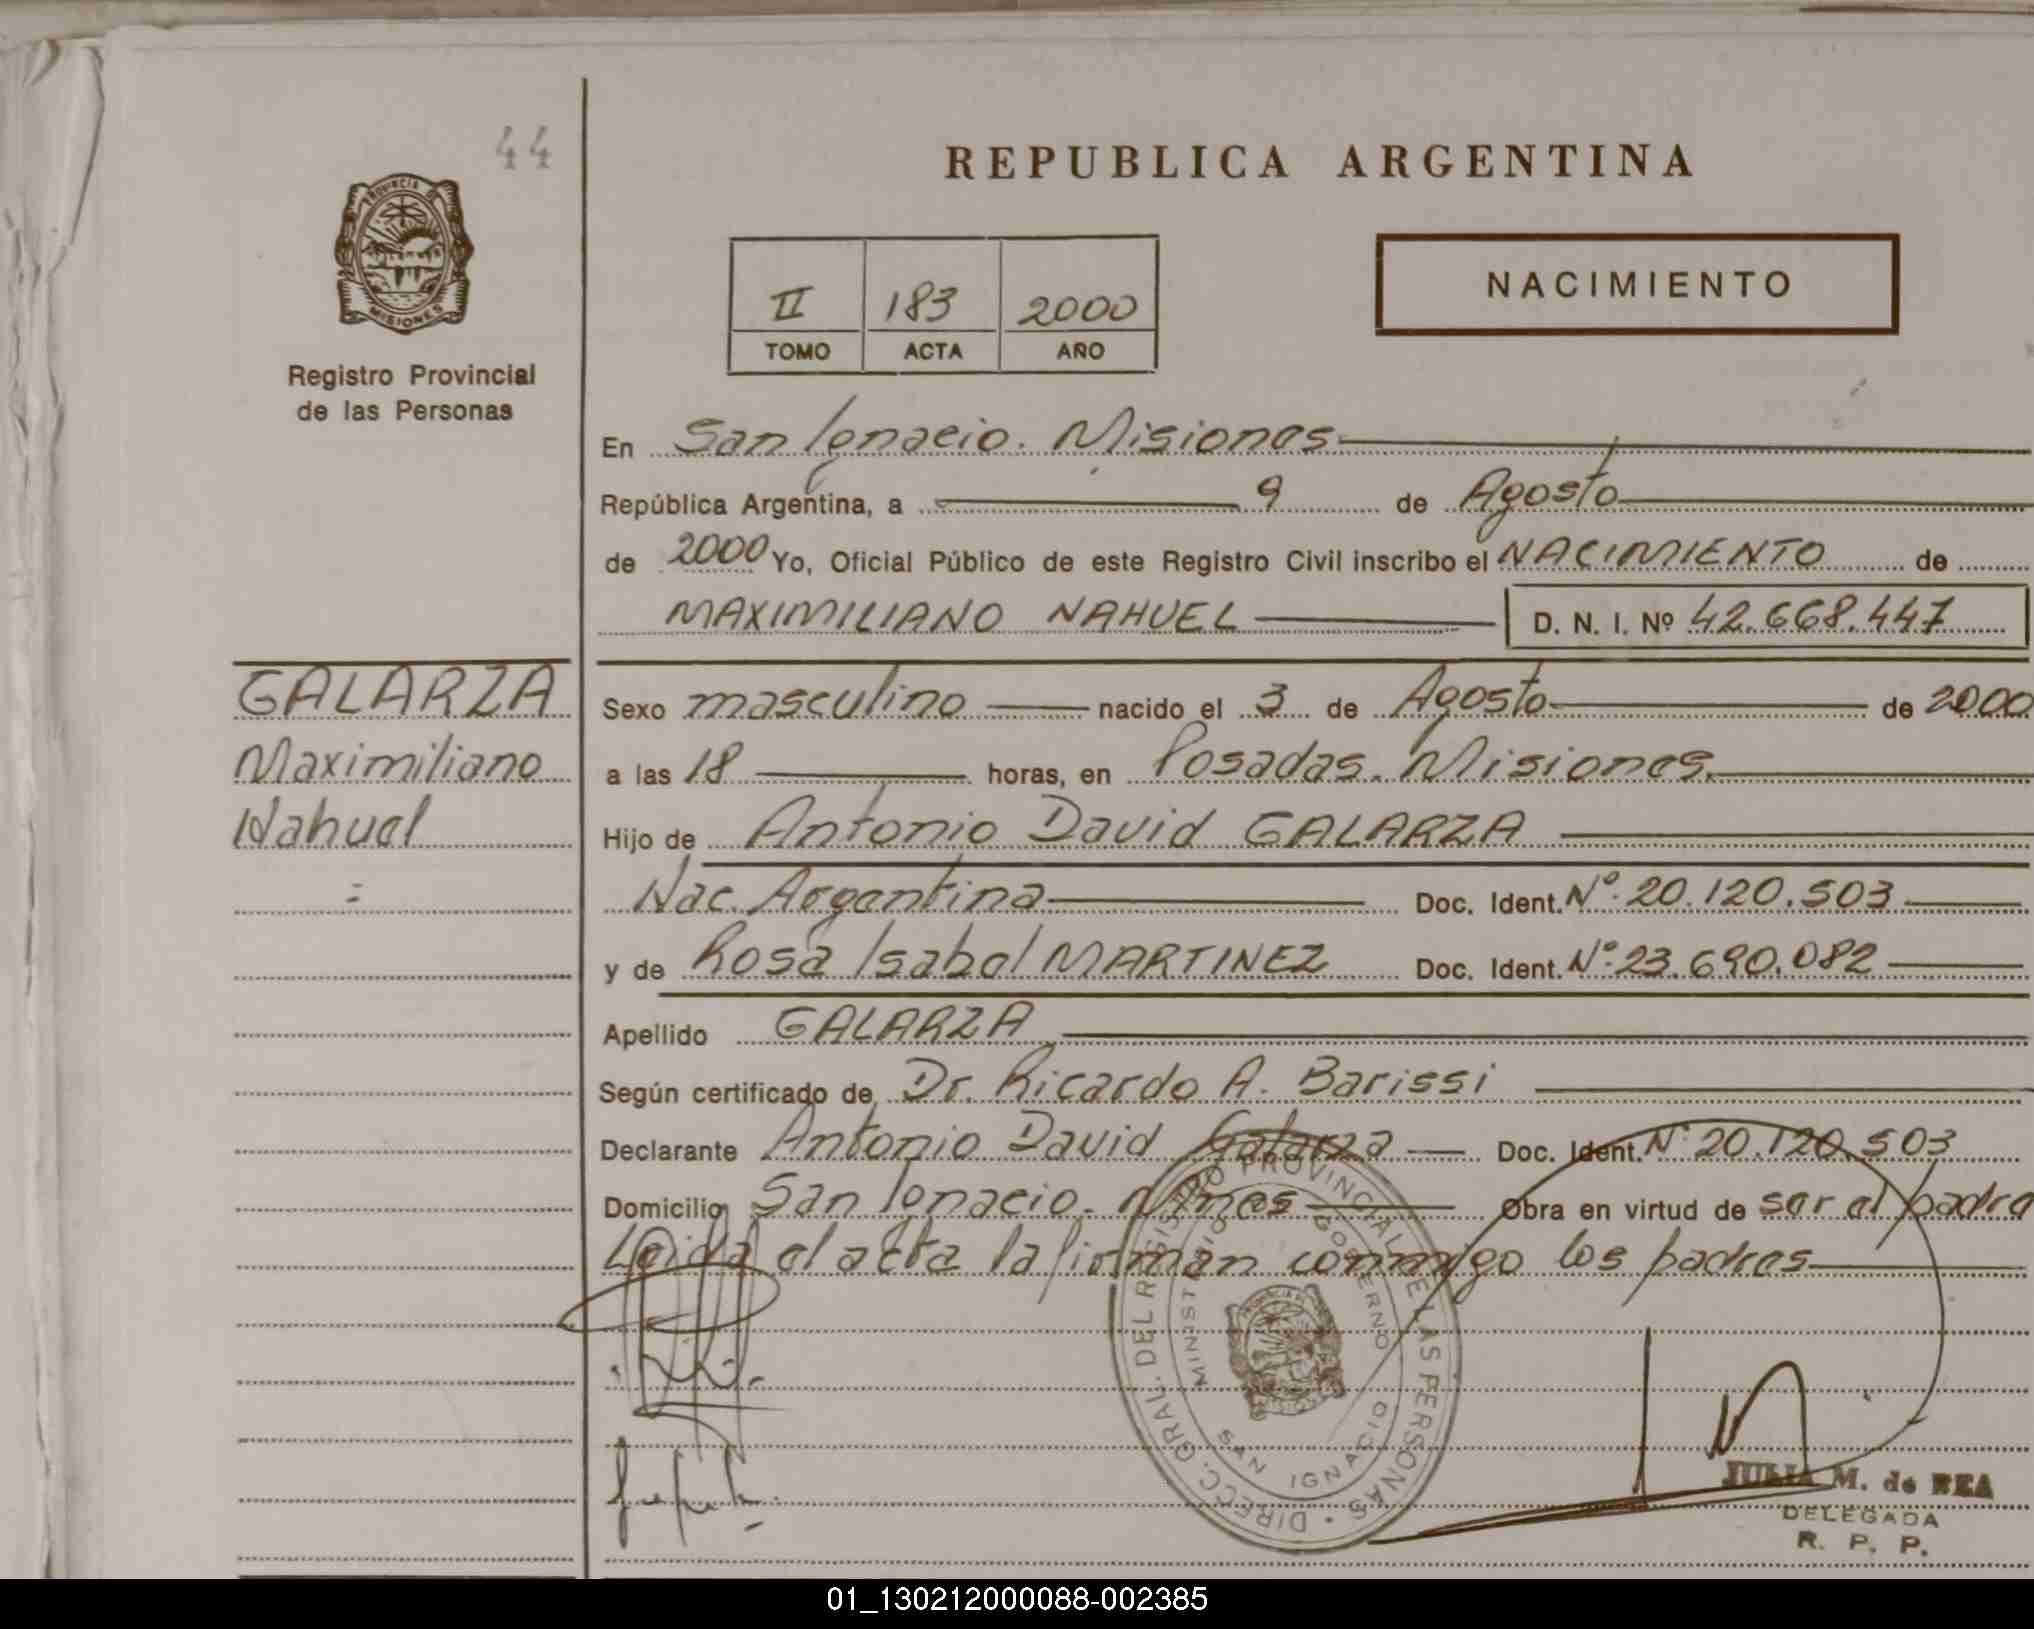 44
REPUBLICA ARGENTINA
PROVINCIA DE
MISIONES
II 183 2000
TOMO ACTA AÑO
NACIMIENTO
Registro Provincial
de las Personas
En San Ignacio. Misiones
República Argentina, a 9 de Agosto
de 2000 Yo, Oficial Público de este Registro Civil inscribo el NACIMIENTO de
MAXIMILIANO NAHUEL D. N. I. Nº 42.668.447
GALARZA
Maximiliano
Nahuel
Sexo masculino nacido el 3 de Agosto de 2000
a las 18 horas, en Posadas. Misiones.
Hijo de Antonio David GALARZA
Nac. Argentina Doc. Ident. Nº 20.120.503
y de Rosa Isabel MARTINEZ Doc. Ident. Nº 23.690.082
Apellido GALARZA
Según certificado de Dr. Ricardo A. Barissi
Declarante Antonio David Galarza Doc. Ident. Nº 20.120.503
Domicilio San Ignacio. Mnes Obra en virtud de ser el padre
Leida el acta la firman conmigo los padres
DIRECC. GRAL. DEL REGISTRO PROVINCIAL DE LAS PERSONAS
MINISTERIO GOBIERNO
SAN IGNACIO
JULIA M. de REA
DELEGADA
R. P. P.
01_130212000088-002385